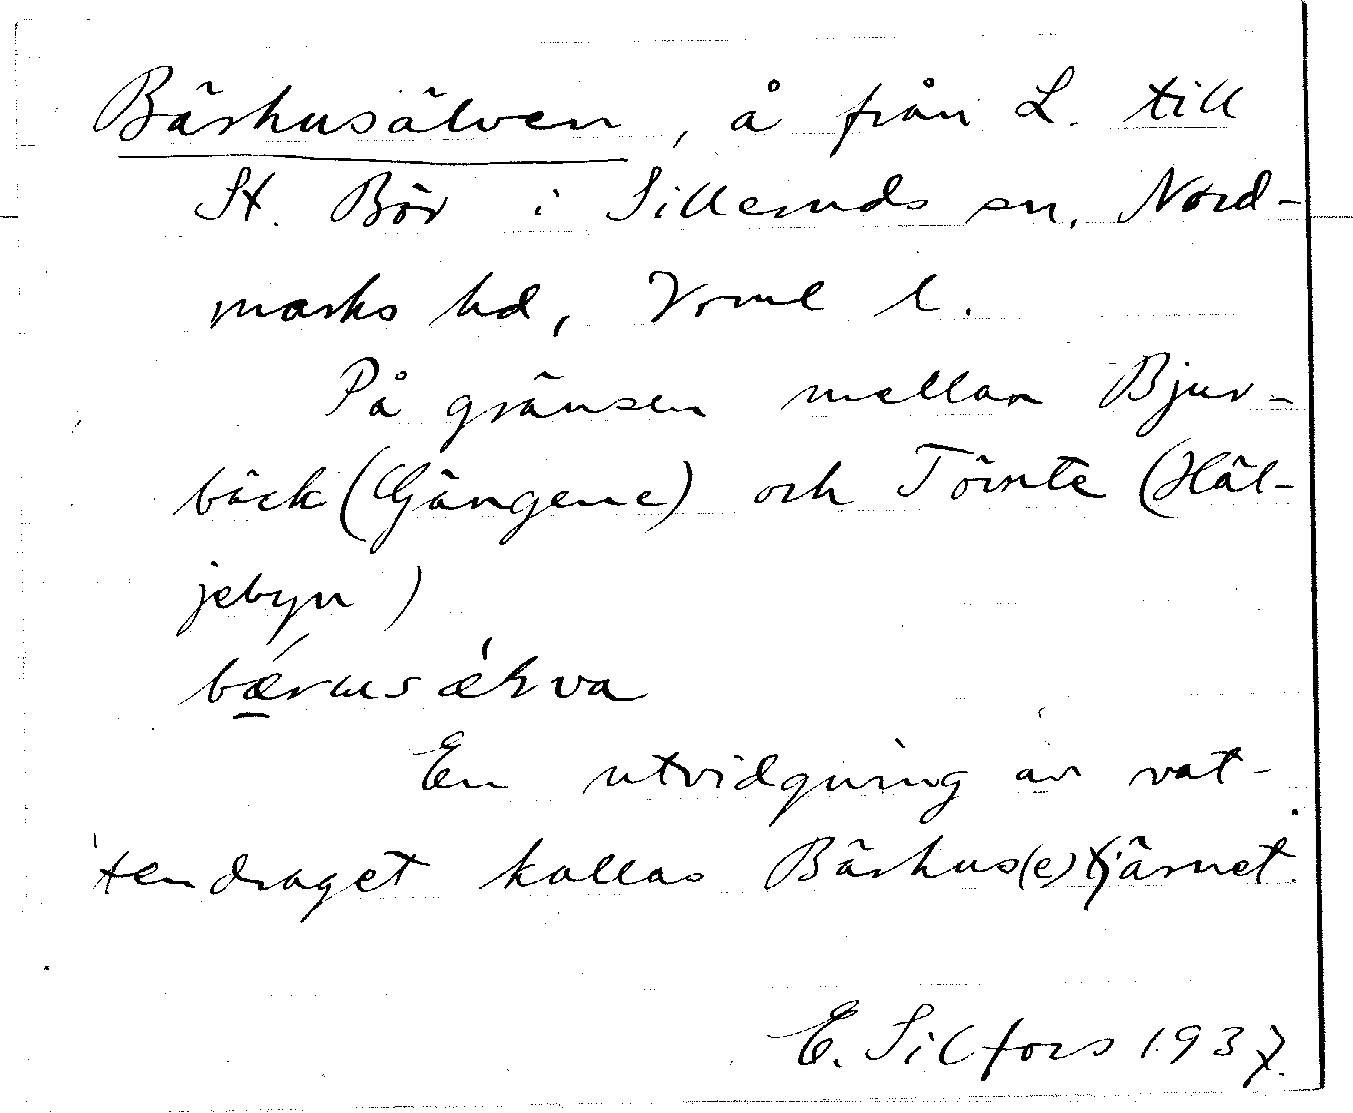 Bärhusälven, å från L. till
St. Bör i Silleruds sn, Nord-
marks hd, Vrml l.
På gränsen mellan Bjur-
bäck (Gängene) och Tömte (Häl-
jebyn)
En utvidgning av vat-
tendraget kallas Bärhus(e)tjärnet.
E. Silfors 1937.